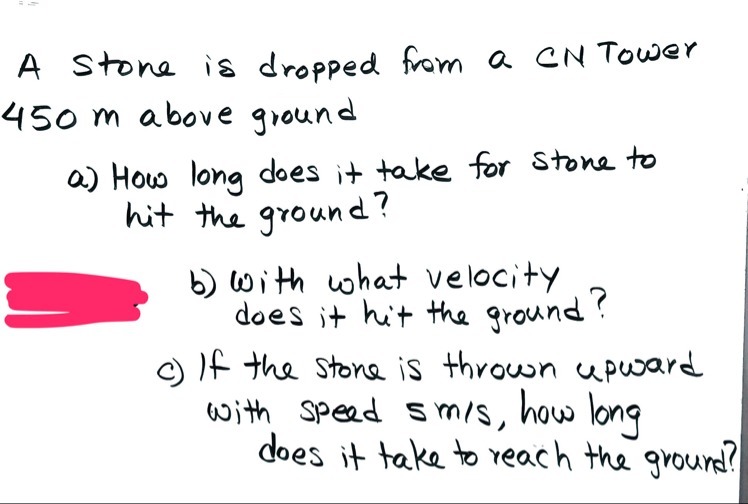 A Stone is dropped from a CN Tower
450 m above ground
a) How long does it take for stone to
hit the ground?
b) With what velocity
does it hit the ground?
c) If the stone is thrown upward
with speed 5 m/s, how long
does it take to reach the ground?